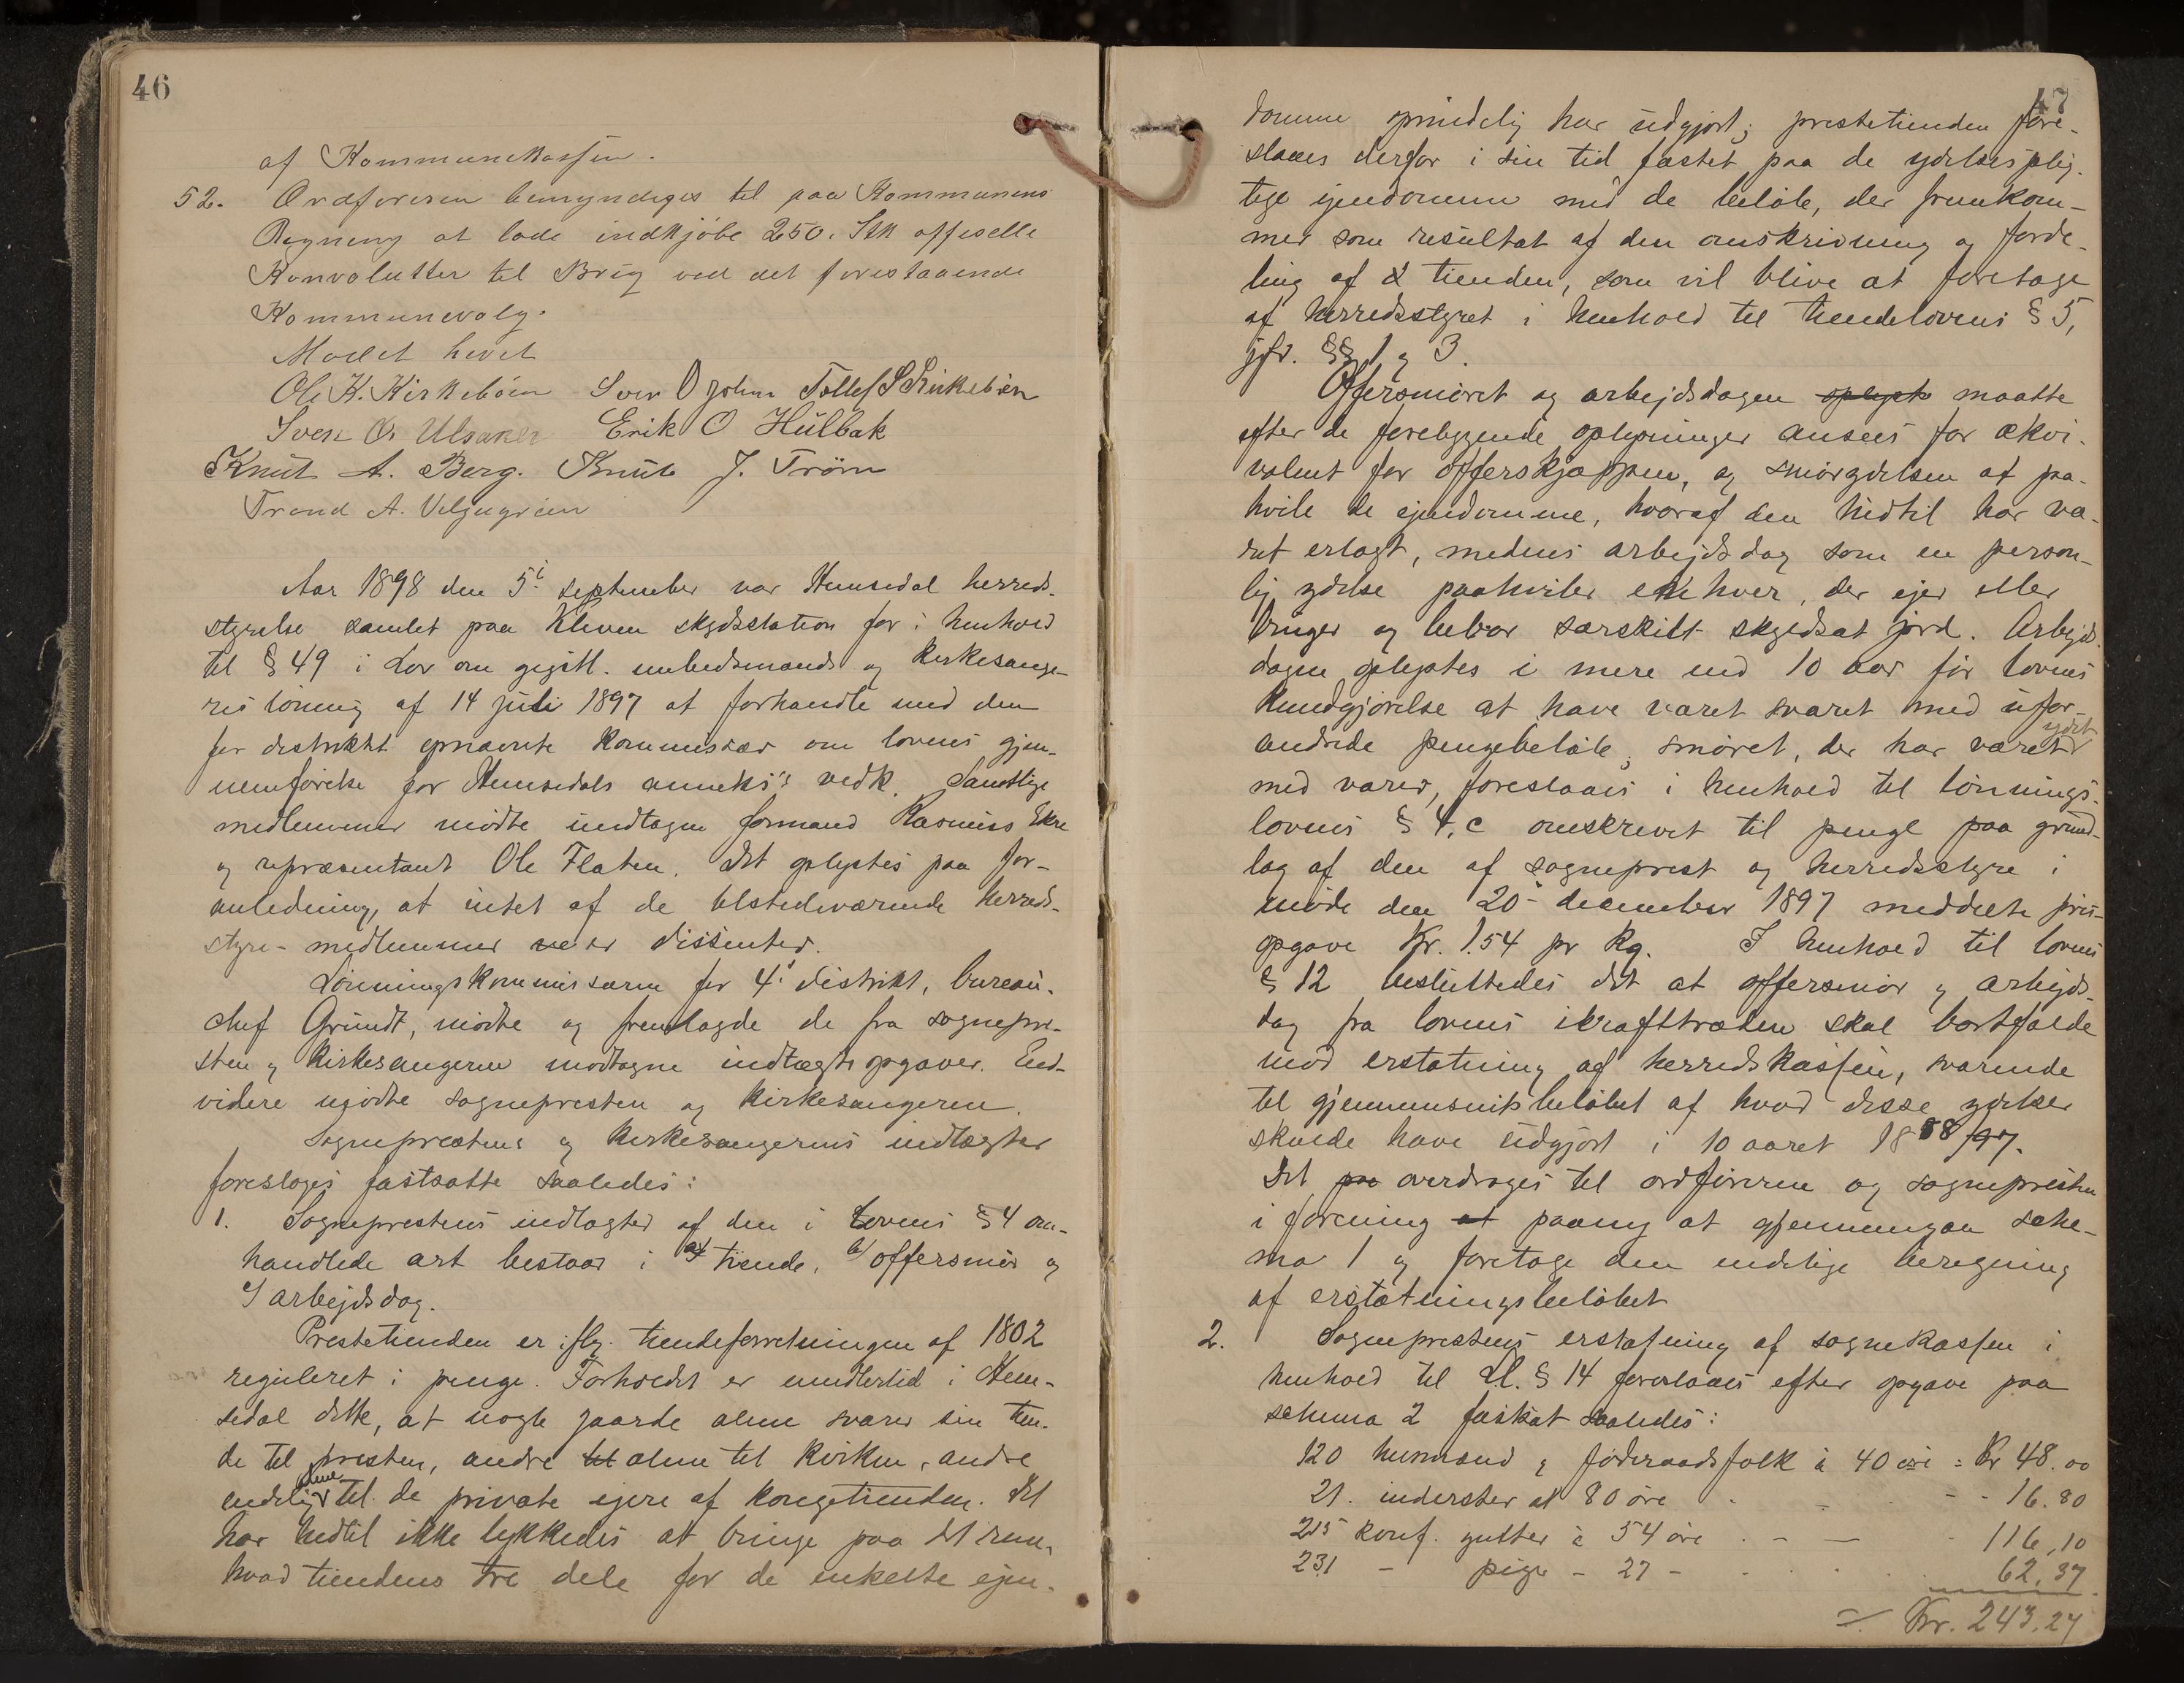 46
af Kommunekassen.
52. Ordføreren bemyndiges til paa Kommunens
Regning at lade indkjøbe 250. Stk offiselle
Konvolutter til Brug ved det forestaaende
Kommunevalg.
Mødet hevet
Ole K. Kirkebøen Sven O Tollef S Kirkebøen
Sven O. Ulsaker Erik O Hulbak
Knut A. Berg. Knut J. Trøim
Trond A.
Aar 1898 den 5te september var Hemsedal herreds-
styrelse samlet paa Kleven skydsstation for i henhold
til § 49 i Lov om gejstl. embedsmænds og kirkesange-
res lønning af 14 juli 1897 at forhandle med den
for distriktet opnævnte kommissær om lovens gjen-
nemførelse for Hemsedals anneks's vedk. Samtlige
medlemmer mødte undtagen formand Rasmus Ekre
og repræsentant Ole Flaten. Det oplystes paa for-
anledning, at intet af de tilstedeværende herreds-
styre-medlemmer er dissenter.
Lønningskommissæren for 4de distrikt, bureau-
chef Grundt, mødte og fremlagde de fra sognepre-
sten og kirkesangeren modtagne indtægtsopgaver. End-
videre mødte sognepresten og kirkesangeren.
Sogneprestens og kirkesangerens indtægter
foresloges fastsatte saaledes:
1. Sogneprestens indtægter af den i Lovens § 4 om-
handlede art bestaar i a) tiende, b) offersmør og
c) arbejdsdag.
Prestetienden er iflg. tiendeforretningen af 1802
reguleret i penge. Forholdet er imidlertid i Hem-
sedal dette, at nogle gaarde alene svarer sin tien-
de til presten, andre til alene til kirken, andre
endelig alene til de private ejere af kongetienden. Det
har hidtil ikke lykkedes at bringe paa det rene,
hvad tiendens tre dele for de enkelte ejen-
47
domme oprindelig har udgjort; prestetienden fore-
slaaes derfor i sin tid fæstet paa de ydelsesplig-
tige ejendomme med de beløb, der fremkom-
mer som resultat af den omskrivning og forde-
ling af tienden, som vil blive at foretage
af herredsstyret i henhold til tiendelovens § 5,
jfr. §§ 1 og 3.
Offersmøret og arbejdsdagen oplyste maatte
efter de foreliggende oplysninger ansees for ækvi-
valent for offerskjæppen, og smørydelsen at paa-
hvile de ejendomme, hvoraf den hidtil har væ-
ret erlagt, medens arbejdsdag som en person-
lig ydelse paahviler enhver, der ejer eller
bruger og bebor særskilt skyldsat jord. Arbejds-
dagen oplystes i mere end 10 aar før lovens
kundgjørelse at have været svaret med ufor-
andrede pengebeløb; smøret, der har været ydet
med varer, foreslaaes i henhold til lønnings-
lovens § 4, c omskrevet til penge paa grund-
lag af den af sogneprest og herredsstyre i
møde den 20de december 1897 meddelte pris-
opgave Kr. 1.54 pr kg. I henhold til lovens
§ 12 besluttedes det at offersmør og arbejds-
dag fra lovens ikrafttræden skal bortfalde
mod erstatning af herredskassen, svarende
til gjennemsnitsbeløbet af hvad disse ydelser
skulde have udgjort i 10 aaret 1888/97.
Det paa overdroges til ordføreren og sognepresten
i forening at paany at gjennemgaa sche-
ma 1 og foretage den endelige beregning
af erstatningsbeløbet
2. Sogneprestens erstatning af sognekassen i
henhold til Ll. § 14 foreslaaes efter opgave paa
schema 2 fastsat saaledes:
120 husmænd og føderaadsfolk à 40 øre = Kr 48.00
21. inderster at 80 øre - - - 16.80
215 konf. gutter à 54 øre - - - 116,10
231 - piger - 27 - - - 62.37
= Kr. 243.27